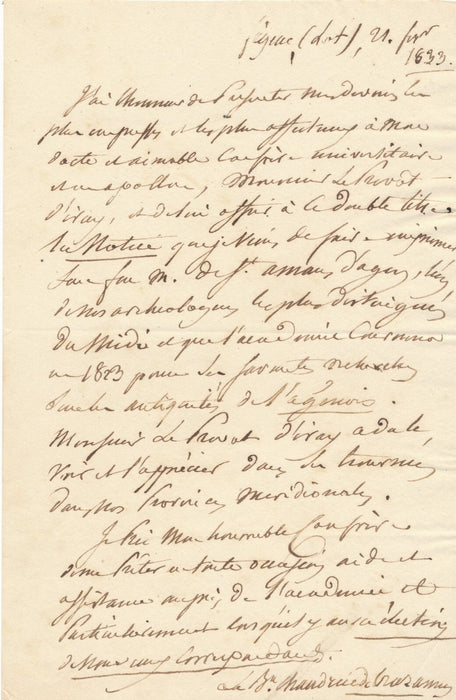 (Lot), 21.
1833.
J'ai l'honneur de présenter mes devoirs les
plus empressés et les plus affectueux à mon
docte et aimable confrère universitaire
et en apollon, Monsieur Le Prevôt
d'iray, et de lui offrir à ce double titre
la Notice que je viens de faire imprimer
sur feu M. de St. amans d'agen, l'un
de nos archéologues les plus distingués
du Midi et que l'académie couronna
en 1823 pour ses savantes recherches
sur les antiquités de l'agenois.
Monsieur Le Prevôt d'iray a dû le
voir et l'apprécier dans ses tournées
dans nos provinces méridionales.
Je prie mon honorable confrère
de me prêter en toute occasion aide et
assistance auprès de l'académie et
particulièrement lorsqu'il y aura élection
de nouveaux correspondants.
Le Bon Chaudruc de Crazannes